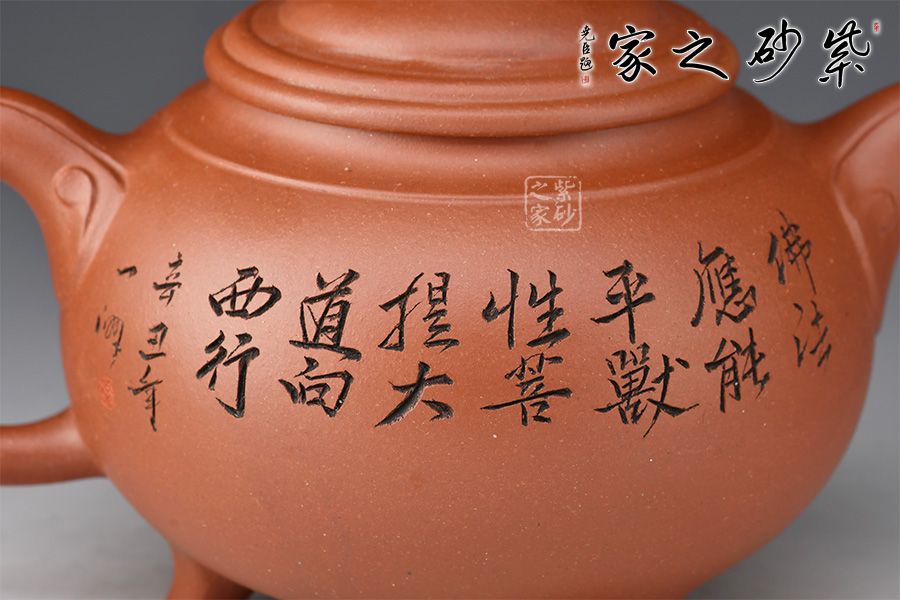 紫砂之家
尧臣题
紫砂之家
佛法
應能
平獸
性菩
提大
道向
西行
辛丑年
一